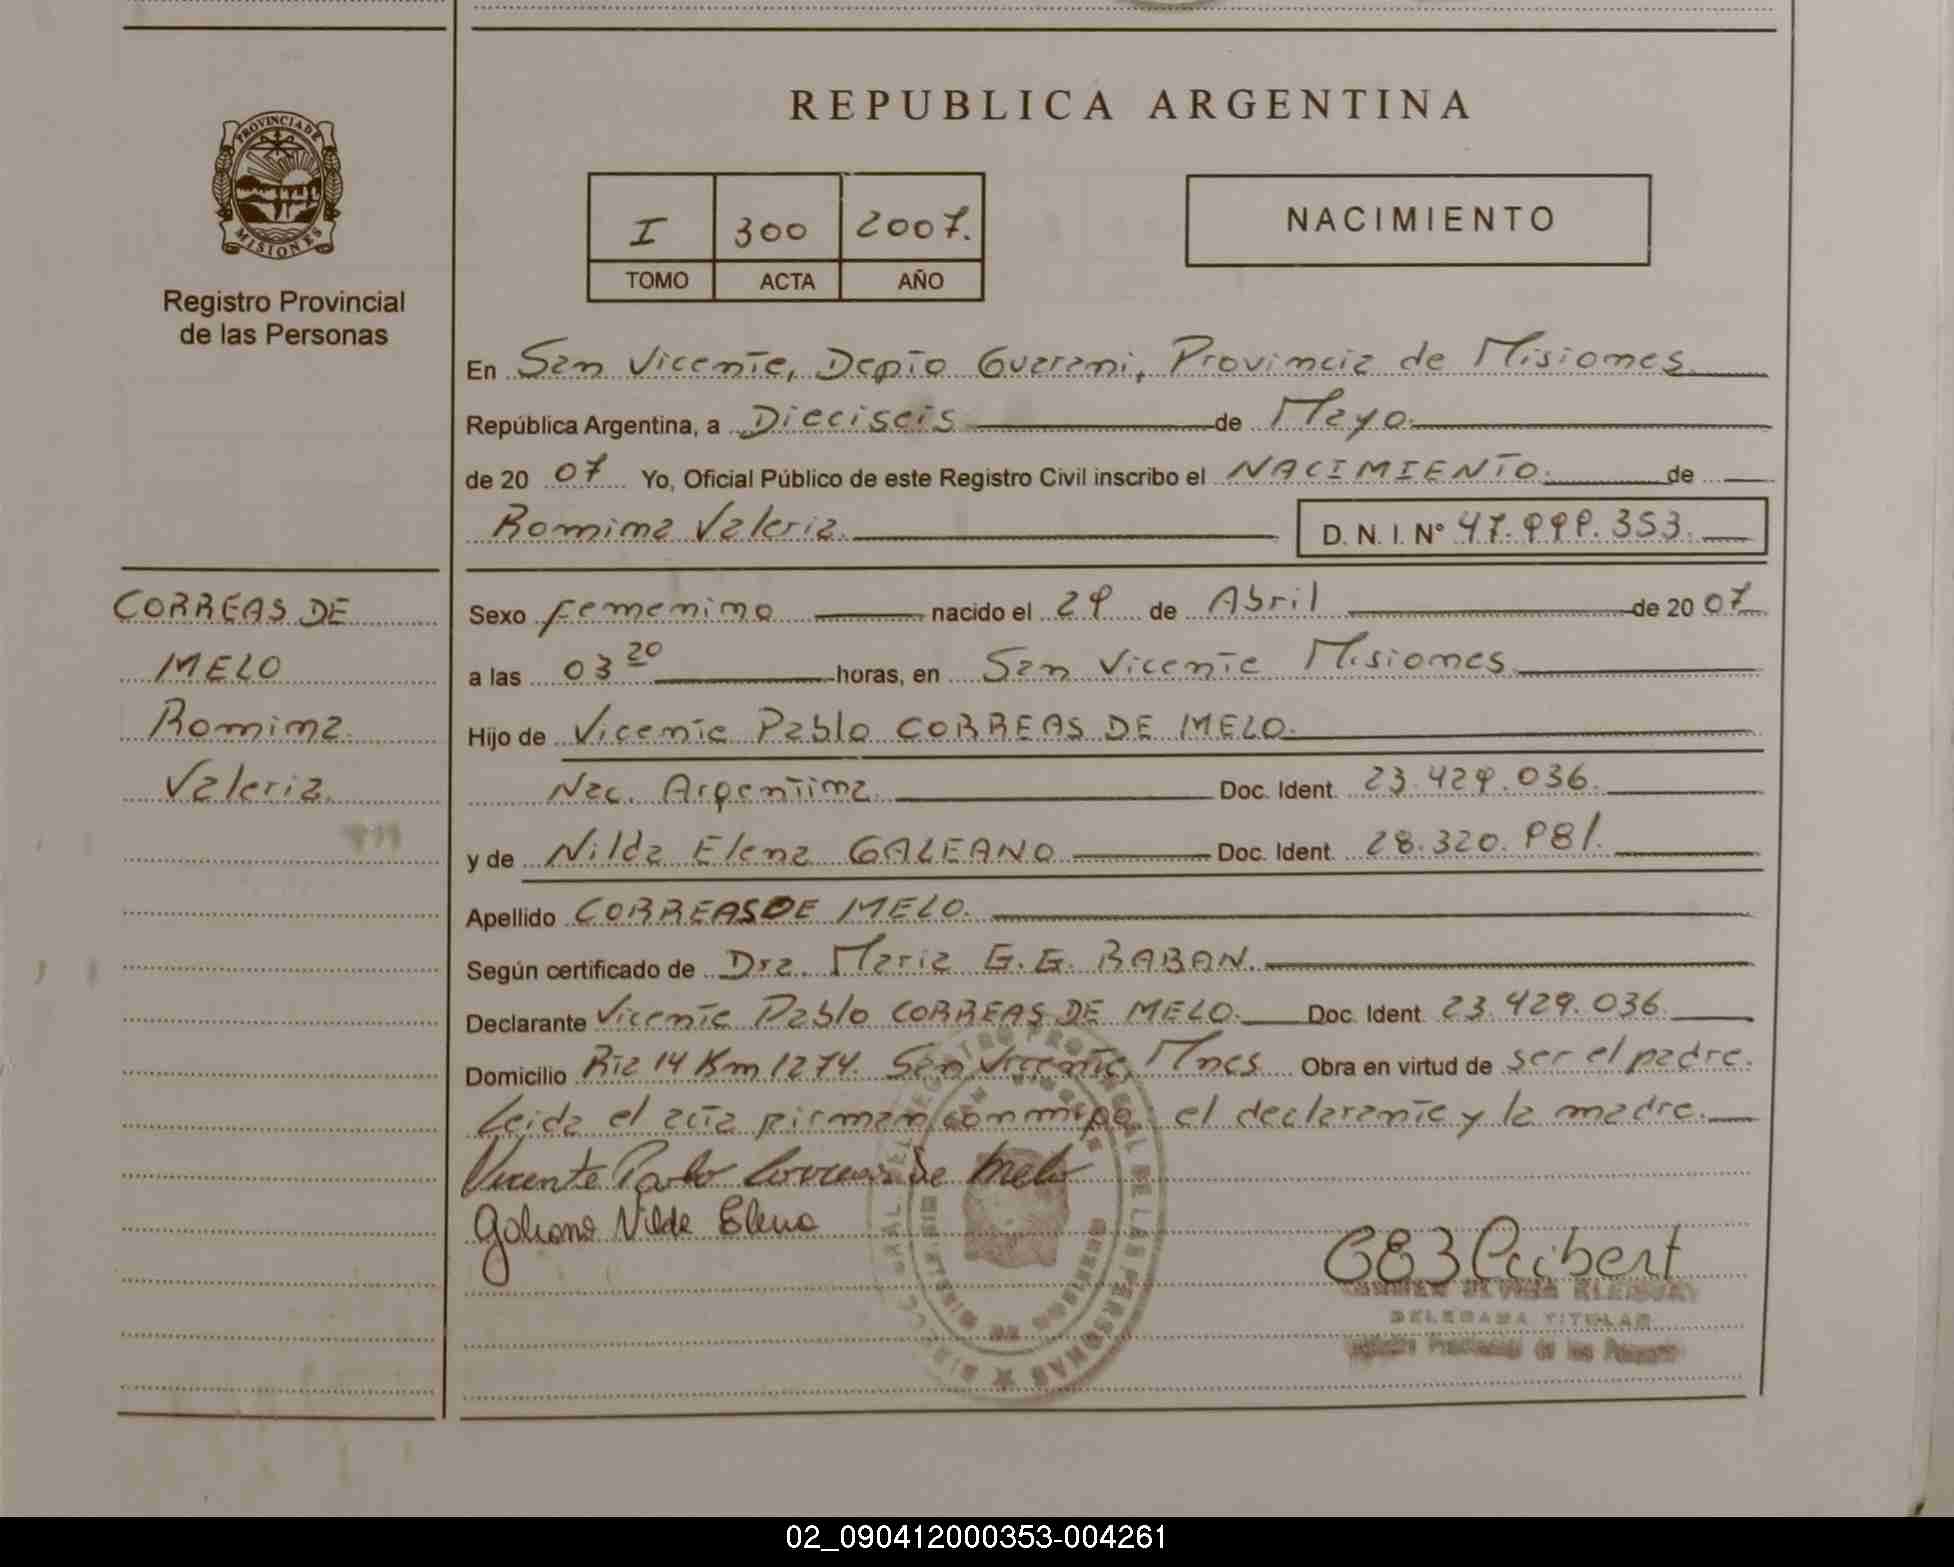 REPUBLICA ARGENTINA
PROVINCIA DE
MISIONES
Registro Provincial
de las Personas
I 300 2007.
TOMO ACTA AÑO
NACIMIENTO
En San Vicente, Depto Guarani, Provincia de Misiones
República Argentina, a Dieciseis de Mayo
de 20 07 Yo, Oficial Público de este Registro Civil inscribo el NACIMIENTO. de
Romina Valeria. D. N. I. Nº 47.999.353.
CORREAS DE
MELO
Romina
Valeria.
Sexo femenino nacido el 29 de Abril de 20 07
a las 03 20 horas, en San Vicente Misiones
Hijo de Vicente Pablo CORREAS DE MELO.
Nac. Argentina Doc. Ident. 23.429.036.
y de Nilda Elena GALEANO Doc. Ident. 28.320.981.
Apellido CORREAS DE MELO.
Según certificado de Dra. Maria G.G. BABAN.
Declarante Vicente Pablo CORREAS DE MELO. Doc. Ident. 23.429.036
Domicilio Rta 14 Km 1274. San Vicente, Mnes Obra en virtud de ser el padre.
Leida el acta firman conmigo: el declarante y la madre.
Vicente Pablo Correas De Melo
Galeano Nilda Elena
DELEGADA TITULAR
Registro Provincial de las Personas
02_090412000353-004261